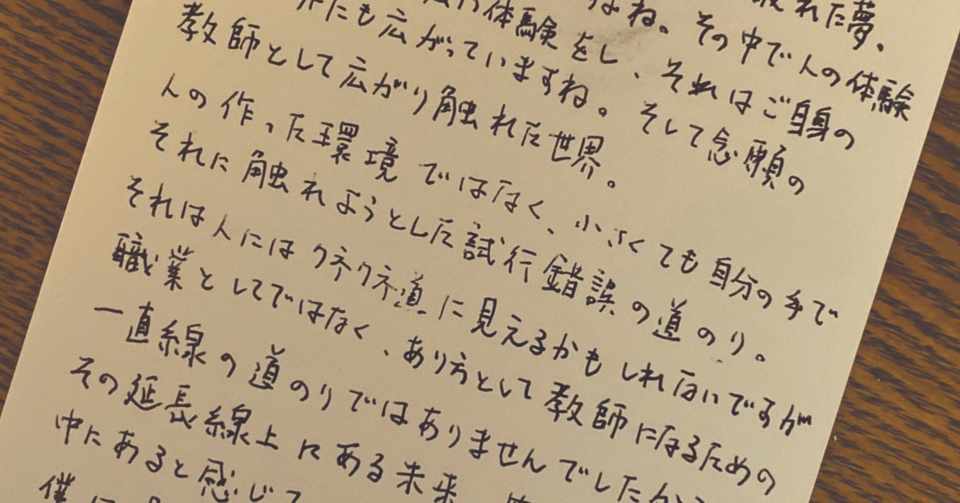 れた夢。
ね。その中で人の体験
の体験をし、それはご自身の
にも広がっていますね。そして念願の
教師として広がり触れた世界。
人の作った環境ではなく、小さくても自分の手で
それに触れようとした試行錯誤の道のり。
それは人にはクネクネ道に見えるかもしれないですが
職業としてではなく、あり方として教師になるための
一直線の道のりではありませんでしたか
その延長線上にある未来
中にあると感じて
僕に